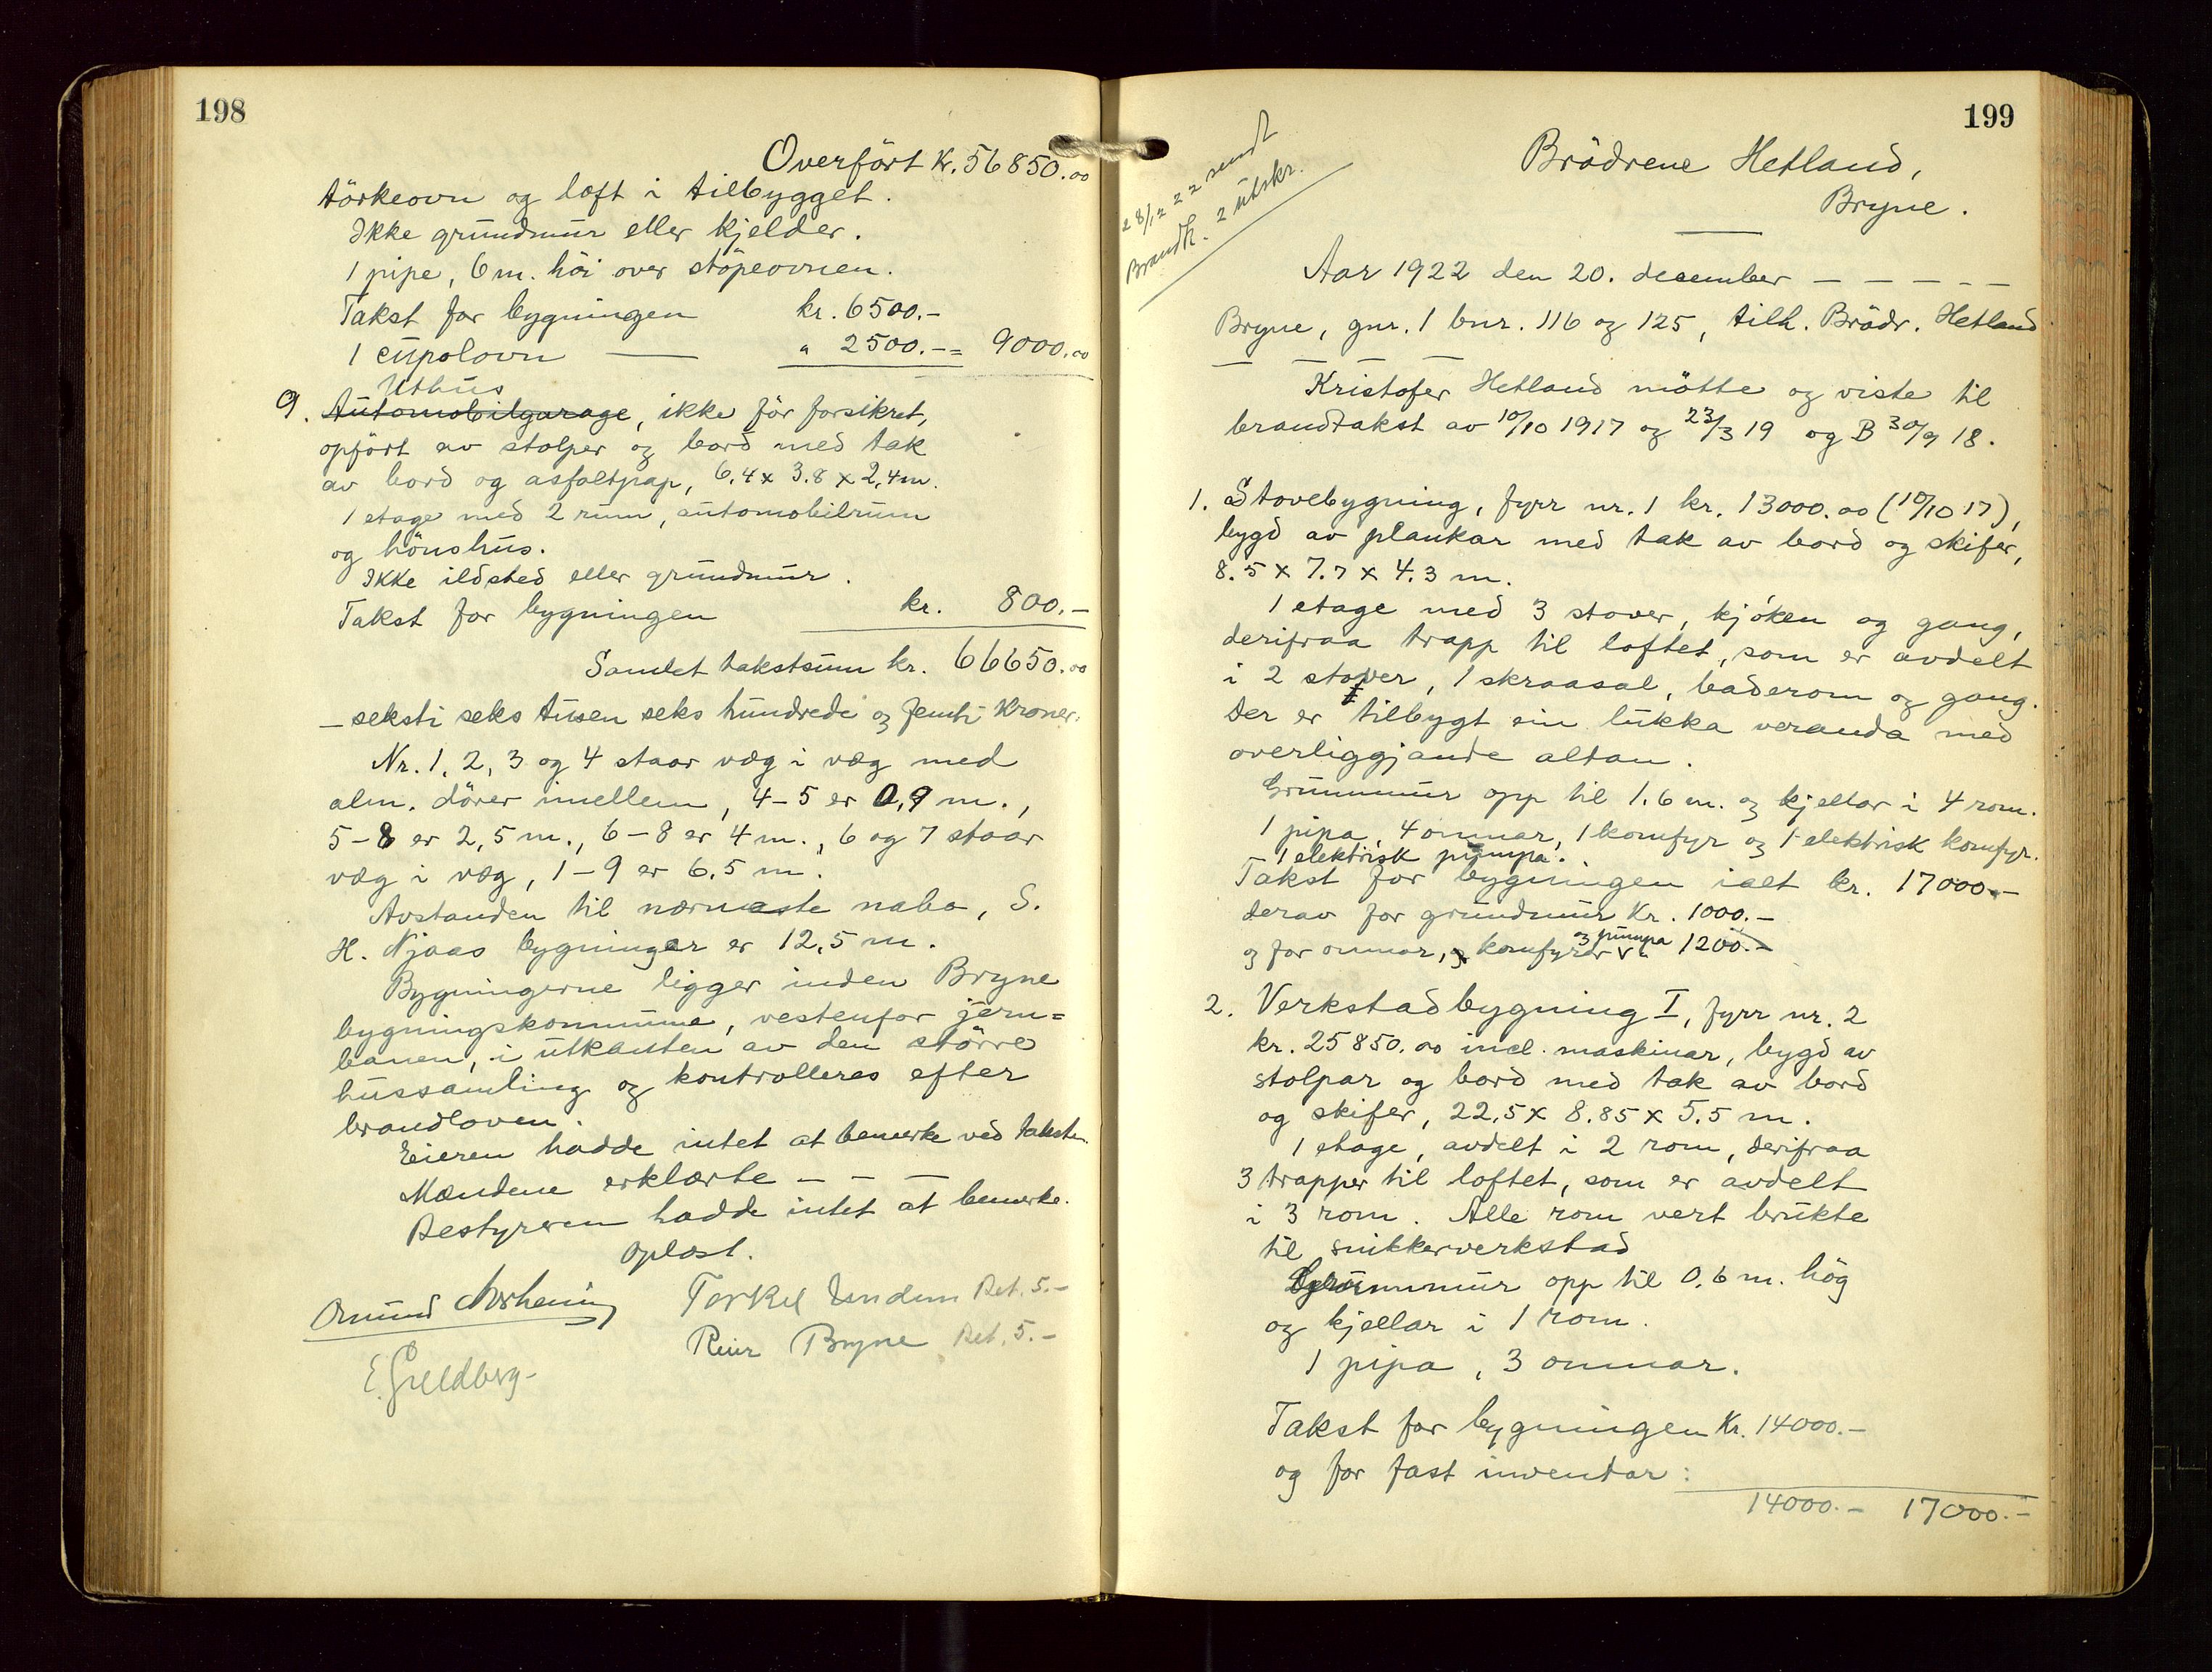 198
Overført Kr. 56850.00
törkeovn og loft i tilbygget.
Ikke grundmur eller kjelder.
1 pipe, 6 m. höi over stöpeovnen.
Takst for bygningen kr. 6500.-
1 cupolovn — " 2500.- = 9000.00
Uthus
9. Automobilgarage, ikke för forsikret,
opfört av stolper og bord med tak
av bord og asfaltpap, 6.4 x 3.8 x 2,4 m.
1 etage med 2 rum, automobilrum
og hönshus.
Ikke ildsted eller grundmur.
Takst for bygningen kr. 800.-
Samlet takstsum kr. 66650.00
- seksti seks tusen seks hundrede og femti Kroner.
Nr. 1, 2, 3 og 4 staar væg i væg med
alm. dörer imellem, 4-5 er 0,9 m.,
5-8 er 2,5 m., 6-8 er 4 m., 6 og 7 staar
væg i væg, 1-9 er 6,5 m.
Avstanden til nærmeste nabo, S.
H. Njaas bygninger er 12,5 m.
Bygningerne ligger inden Bryne
bygningskommune, vestenfor jern=
banen, i utkanten av den större
hussamling og kontrolleres efter
brandloven.
Eieren hadde intet at bemerke ved taksten.
Mændene erklærte - - -
Bestyreren hadde intet at bemerke.
Oplæst.
Omund Torkel Undem Bet. 5.-
Reier Bryne Bet. 5.-
199
28/12 22 sendt
Brandk. 2 utskr.
Brödrene Hetland,
Bryne.
Aar 1922 den 20. december - - - - -
Bryne, gnr. 1 bnr. 116 og 125, tilh. Brödr. Hetland
- - -
Kristofer Hetland mötte og viste til
brandtakst av 10/10 1917 og 23/3 19 og B 30/9 18.
1. Stovebygning, fyrr nr. 1 kr. 13000.00 (10/10 17),
bygd av plankar med tak av bord og skifer,
8.5 x 7.7 x 4.3 m.
1 etage med 3 stover, kjöken og gang,
derifraa trapp til loftet, som er avdelt
i 2 stover, 1 skraasal, baderom og gang.
Der er tilbygt ein lukka veranda med
overliggjande altan.
Grunnmur opp til 1.6 m. og kjellar i 4 rom.
1 pipa, 4 omnar, 1 komfyr og 1 elektrisk komfyr.
1 elektrisk pumpa.
Takst for bygningen ialt kr. 17000.-
derav for grundmur Kr. 1000.-
og pumpa
og for omnar, og komfyrer kr. 1200.-
2. Verkstadbygning I, fyrr nr. 2
kr. 25850.00 incl. maskinar, bygd av
stolpar og bord med tak av bord
og skifer, 22,5 x 8.85 x 5.5 m.
1 etage, avdelt i 2 rom, derifraa
3 trapper til loftet, som er avdelt
i 3 rom. Alle rom vert brukte
til snikkerverkstad
Grunnmur opp til 0.6 m. hög
og kjellar i 1 rom.
1 pipa, 3 omnar.
Takst for bygningen Kr. 14000.-
og for fast inventar:
14000.- 17000.-